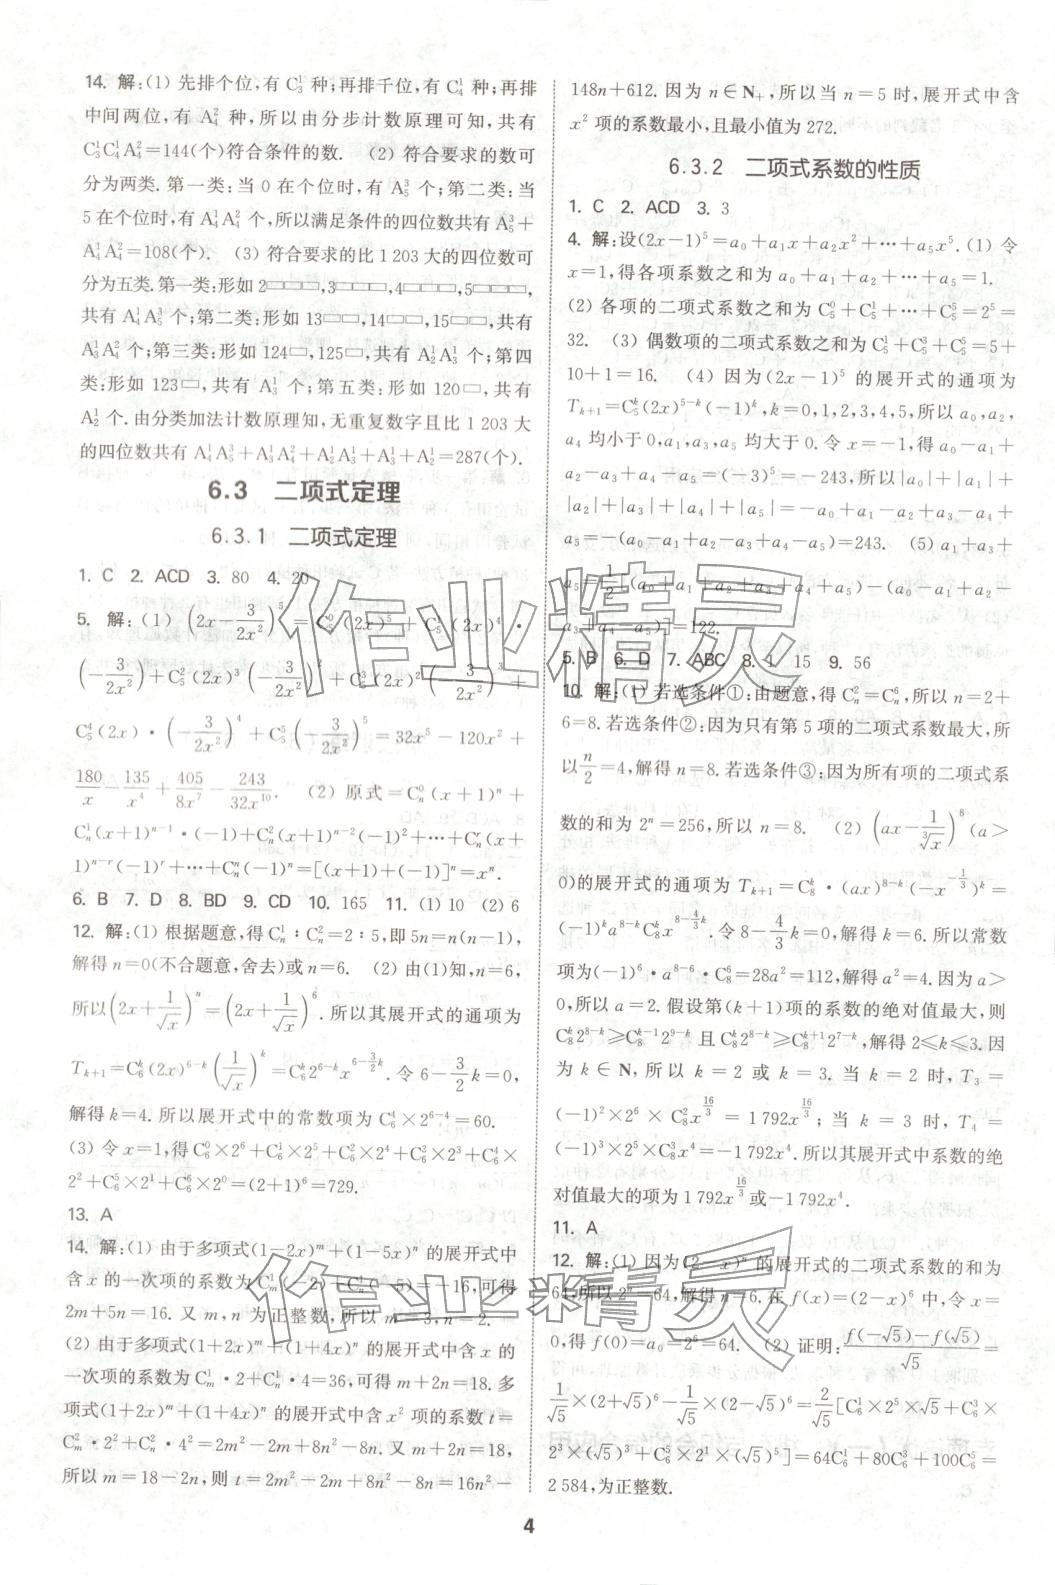 14. 解:(1) 先排个位,有 C₃¹ 种;再排千位,有 C₄¹ 种;再排
中间两位,有 A₄² 种,所以由分步计数原理可知,共有
C₃¹C₄¹A₄²=144(个)符合条件的数. (2) 符合要求的数可
分为两类. 第一类:当 0 在个位时,有 A₅³ 个;第二类:当
5 在个位时,有 A₄¹A₄² 个,所以满足条件的四位数共有 A₅³+
A₄¹A₄²=108(个). (3) 符合要求的比 1 203 大的四位数可
分为五类. 第一类:形如 2▭▭▭,3▭▭▭,4▭▭▭,5▭▭▭,
共有 A₄¹A₅³ 个;第二类:形如 13▭▭,14▭▭,15▭▭,共有
A₃¹A₄² 个;第三类:形如 124▭,125▭,共有 A₂¹A₃¹ 个;第四
类:形如 123▭,共有 A₃¹ 个;第五类:形如 120▭,共有
A₂¹ 个. 由分类加法计数原理知,无重复数字且比 1 203 大
的四位数共有 A₄¹A₅³+A₃¹A₄²+A₂¹A₃¹+A₃¹+A₂¹=287(个).
6.3 二项式定理
6.3.1 二项式定理
1. C 2. ACD 3. 80 4. 20
5. 解:(1) (2x−3/2x²)⁵=C₅⁰(2x)⁵+C₅¹(2x)⁴·
(−3/2x²)+C₅²(2x)³(−3/2x²)²+C₅³(2x)²(−3/2x²)³+
C₅⁴(2x)·(−3/2x²)⁴+C₅⁵(−3/2x²)⁵=32x⁵−120x²+
180/x−135/x⁴+405/8x⁷−243/32x¹⁰. (2) 原式=Cₙ⁰(x+1)ⁿ+
Cₙ¹(x+1)ⁿ⁻¹·(−1)+Cₙ²(x+1)ⁿ⁻²(−1)²+…+Cₙʳ(x+
1)ⁿ⁻ʳ(−1)ʳ+…+Cₙⁿ(−1)ⁿ=[(x+1)+(−1)]ⁿ=xⁿ.
6. B 7. D 8. BD 9. CD 10. 165 11. (1) 10 (2) 6
12. 解:(1) 根据题意,得 Cₙ¹∶Cₙ²=2∶5,即 5n=n(n−1),
解得 n=0(不合题意,舍去)或 n=6. (2) 由(1)知,n=6,
所以(2x+1/√x)ⁿ=(2x+1/√x)⁶. 所以其展开式的通项为
Tₖ₊₁=C₆ᵏ(2x)⁶⁻ᵏ(1/√x)ᵏ=C₆ᵏ2⁶⁻ᵏx^(6−3/2k). 令 6−3/2k=0,
解得 k=4. 所以展开式中的常数项为 C₆⁴×2⁶⁻⁴=60.
(3) 令 x=1,得 C₆⁰×2⁶+C₆¹×2⁵+C₆²×2⁴+C₆³×2³+C₆⁴×
2²+C₆⁵×2¹+C₆⁶×2⁰=(2+1)⁶=729.
13. A
14. 解:(1) 由于多项式(1−2x)ᵐ+(1−5x)ⁿ 的展开式中
含 x 的一次项的系数为 Cₘ¹(−2)+Cₙ¹(−5)=−16,可得
2m+5n=16. 又 m,n 为正整数,所以 m=3,n=2.
(2) 由于多项式(1+2x)ᵐ+(1+4x)ⁿ 的展开式中含 x 的
一次项的系数为 Cₘ¹·2+Cₙ¹·4=36,可得 m+2n=18. 多
项式(1+2x)ᵐ+(1+4x)ⁿ 的展开式中含 x² 项的系数 t=
Cₘ²·2²+Cₙ²·4²=2m²−2m+8n²−8n. 又 m+2n=18,
所以 m=18−2n,则 t=2m²−2m+8n²−8n=16n²−
148n+612. 因为 n∈N₊,所以当 n=5 时,展开式中含
x² 项的系数最小,且最小值为 272.
6.3.2 二项式系数的性质
1. C 2. ACD 3. 3
4. 解:设(2x−1)⁵=a₀+a₁x+a₂x²+…+a₅x⁵. (1) 令
x=1,得各项系数之和为 a₀+a₁+a₂+…+a₅=1.
(2) 各项的二项式系数之和为 C₅⁰+C₅¹+…+C₅⁵=2⁵=
32. (3) 偶数项的二项式系数之和为 C₅¹+C₅³+C₅⁵=5+
10+1=16. (4) 因为(2x−1)⁵ 的展开式的通项为
Tₖ₊₁=C₅ᵏ(2x)⁵⁻ᵏ(−1)ᵏ,k=0,1,2,3,4,5,所以 a₀,a₂,
a₄ 均小于 0,a₁,a₃,a₅ 均大于 0. 令 x=−1,得 a₀−a₁+
a₂−a₃+a₄−a₅=(−3)⁵=−243,所以|a₀|+|a₁|+
|a₂|+|a₃|+|a₄|+|a₅|=−a₀+a₁−a₂+a₃−a₄+
a₅=−(a₀−a₁+a₂−a₃+a₄−a₅)=243. (5) a₁+a₃+
a₅=1/2[(a₀+a₁+a₂+a₃+a₄+a₅)−(a₀−a₁+a₂−
a₃+a₄−a₅)]=122.
5. B 6. D 7. ABC 8. 1 15 9. 56
10. 解:(1) 若选条件①:由题意,得 Cₙ²=Cₙ⁶,所以 n=2+
6=8. 若选条件②:因为只有第 5 项的二项式系数最大,所
以 n/2=4,解得 n=8. 若选条件③:因为所有项的二项式系
数的和为 2ⁿ=256,所以 n=8. (2) (ax−1/∛x)⁸(a>
0)的展开式的通项为 Tₖ₊₁=C₈ᵏ·(ax)⁸⁻ᵏ(−x^(−1/3))ᵏ=
(−1)ᵏa⁸⁻ᵏC₈ᵏx^(8−4/3k). 令 8−4/3k=0,解得 k=6. 所以常数
项为(−1)⁶·a⁸⁻⁶·C₈⁶=28a²=112,解得 a²=4. 因为 a>
0,所以 a=2. 假设第(k+1)项的系数的绝对值最大,则
C₈ᵏ2⁸⁻ᵏ≥C₈ᵏ⁻¹2⁹⁻ᵏ 且 C₈ᵏ2⁸⁻ᵏ≥C₈ᵏ⁺¹2⁷⁻ᵏ,解得 2≤k≤3. 因
为 k∈N,所以 k=2 或 k=3. 当 k=2 时,T₃=
(−1)²×2⁶×C₈²x^(16/3)=1 792x^(16/3);当 k=3 时,T₄=
(−1)³×2⁵×C₈³x⁴=−1 792x⁴. 所以其展开式中系数的绝
对值最大的项为 1 792x^(16/3)或−1 792x⁴.
11. A
12. 解:(1) 因为(2−x)ⁿ 的展开式的二项式系数的和为
64,所以 2ⁿ=64,解得 n=6. 在 f(x)=(2−x)⁶ 中,令 x=
0,得 f(0)=a₀=2⁶=64. (2) 证明:f(−√5)−f(√5)/√5=
1/√5×(2+√5)⁶−1/√5×(2−√5)⁶=2/√5[C₆¹×2⁵×√5+C₆³×
2³×(√5)³+C₆⁵×2¹×(√5)⁵]=64C₆¹+80C₆³+100C₆⁵=
2 584,为正整数.
4
作业精灵
作业精灵